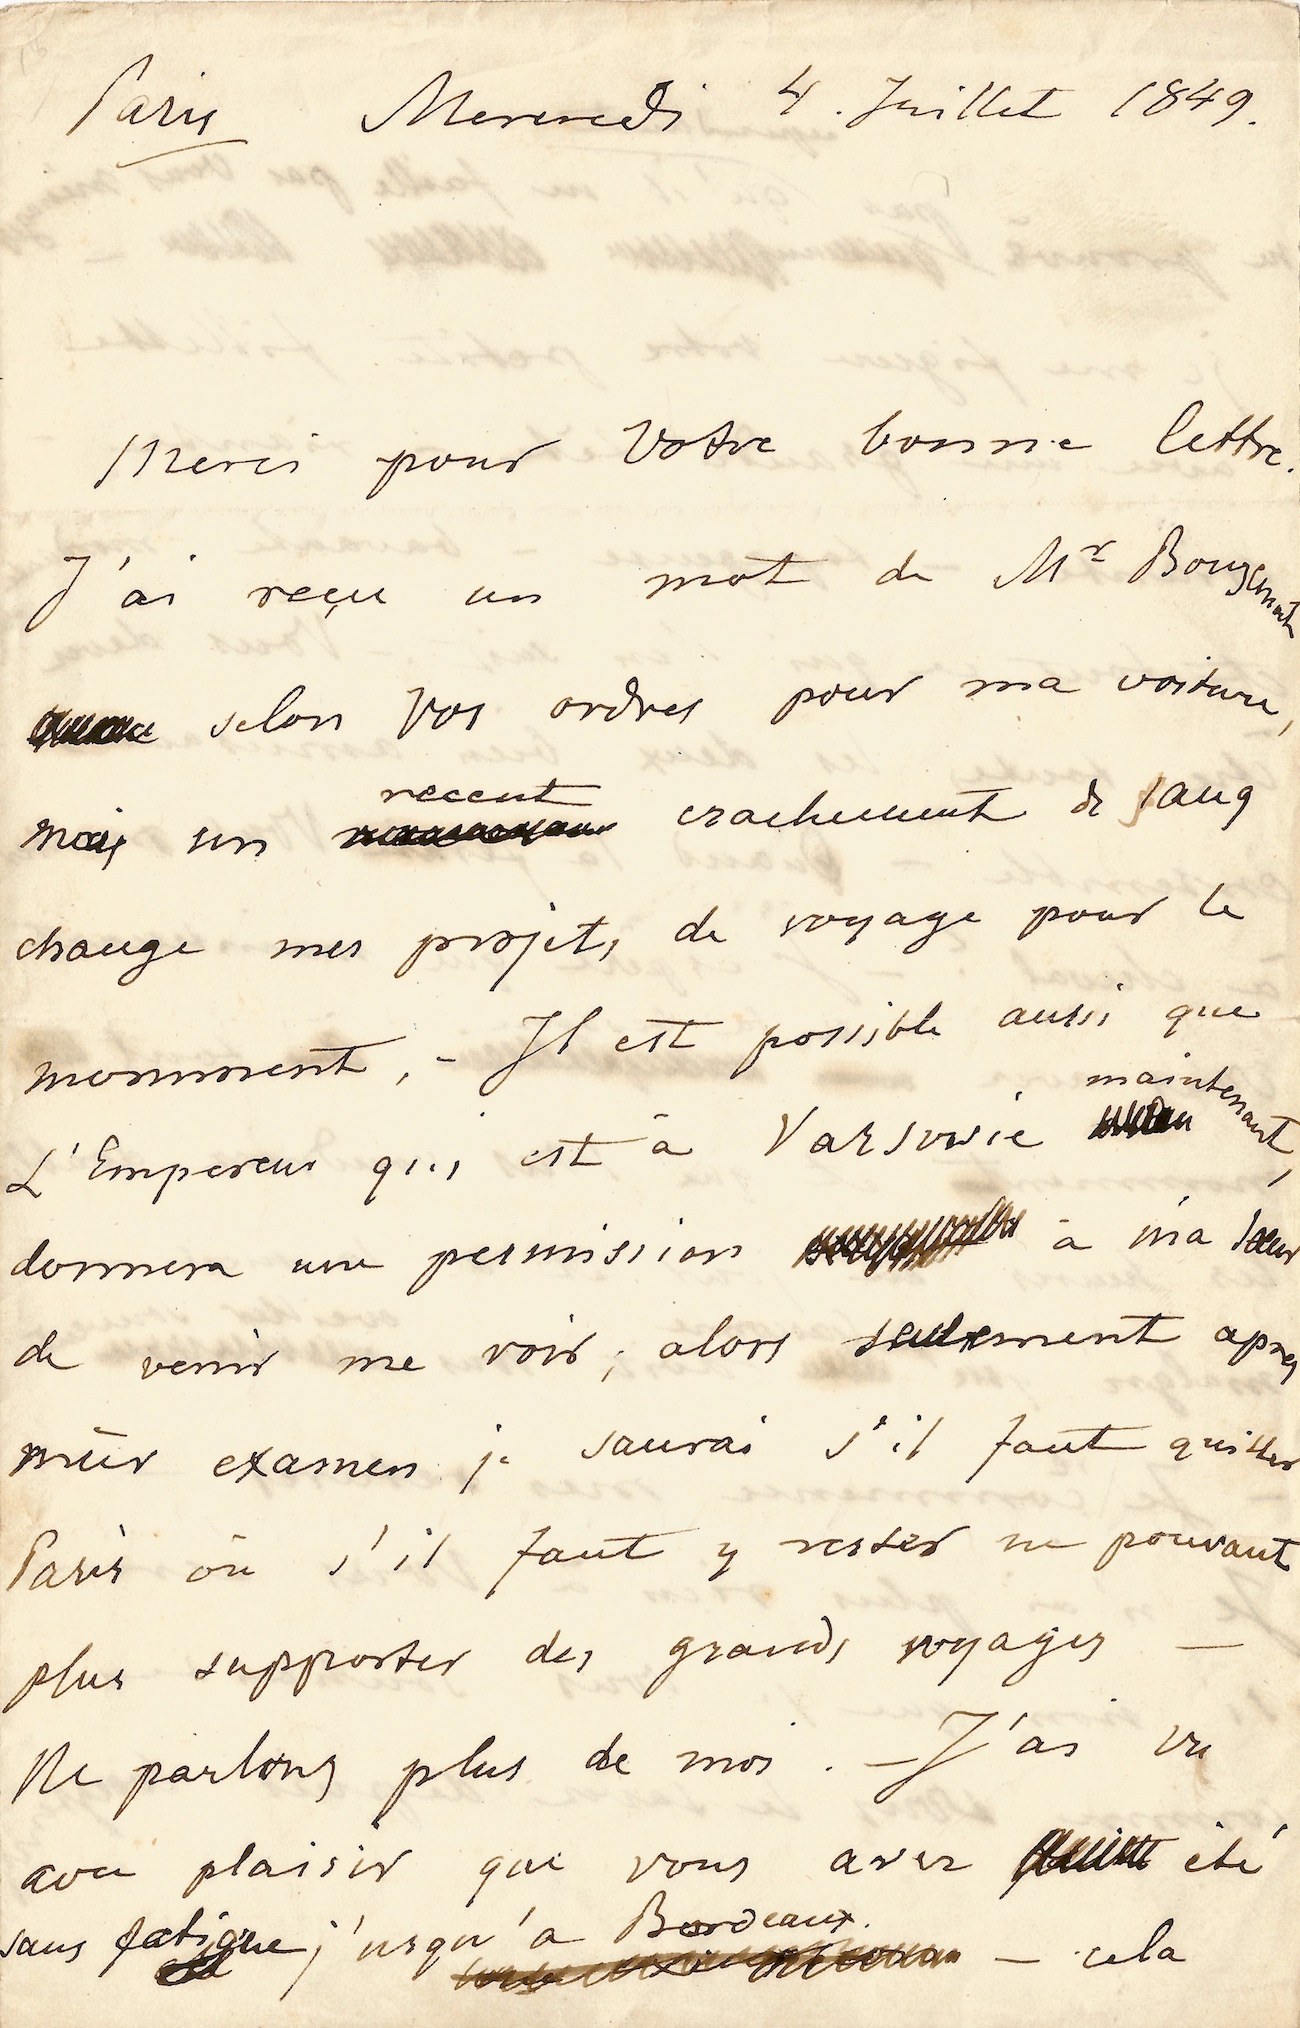 Paris Mercredi 4. Juillet 1849.
Merci pour Votre bonne lettre.
J'ai reçu un mot de Mr
selon Vos ordres pour ma voiture,
recent
mais un crachement de sang
change mes projets de voyage pour le
monment, – Il est possible aussi que
maintenant,
L'Empereur qui est à Varsovie
donnera une permission à ma sœur
de venir me voir; alors seulement apres
mûr examen je saurai s'il faut quitter
Paris ou s'il faut y rester ne pouvant
plus supporter des grands voyages –
Ne parlons plus de moi. – J'ai vu
avec plaisir que vous avez été
sans fatigue j'usqu'à Bordeaux.
– cela